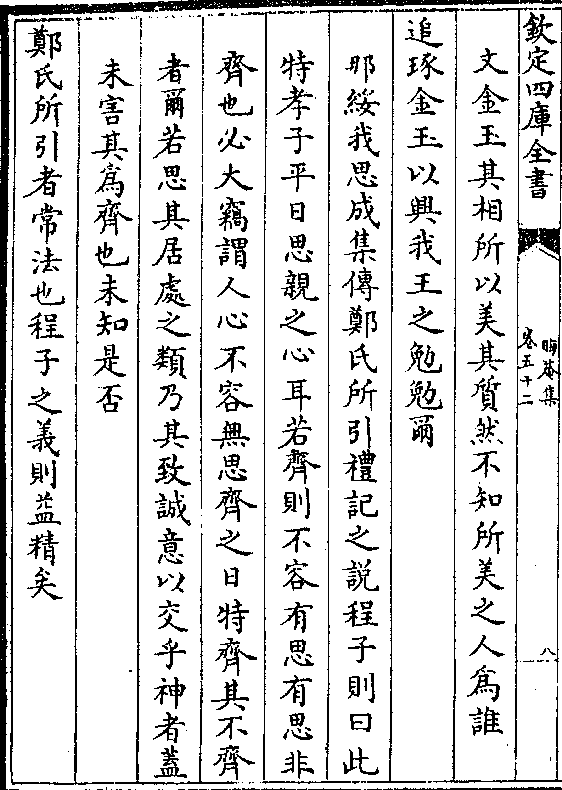 欽定四庫全書
晦菴集
卷五十二
八
文金玉其相所以美其質然不知所美之人為誰
追琢金玉以興我王之勉勉爾
那綏我思成集傳鄭氏所引禮記之說程子則曰此
特孝子平日思親之心耳若齊則不容有思有思非
齊也必大竊謂人心不容無思齊之日特齊其不齊
者爾若思其居處之類乃其致誠意以交乎神者蓋
未害其為齊也未知是否
鄭氏所引者常法也程子之義則益精矣